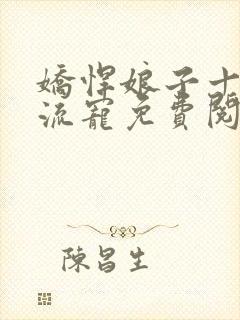 嬌悍娘子十
流寵免費閱
陳昌生